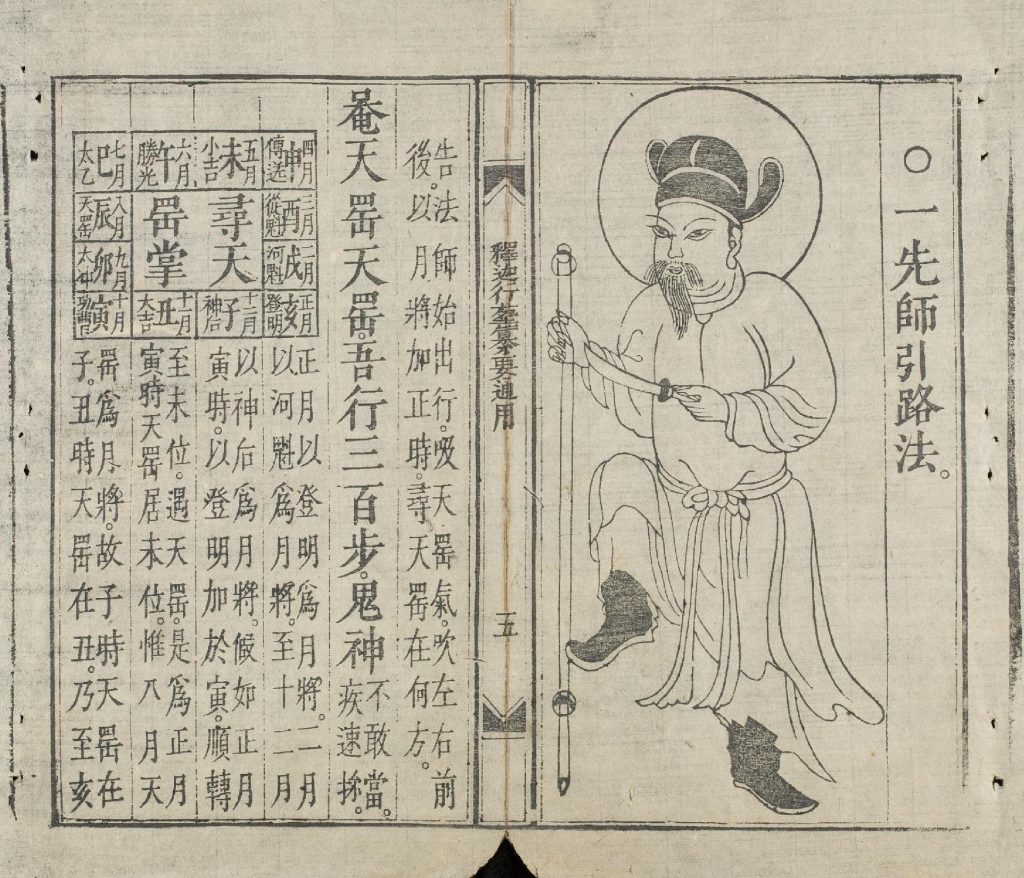 ○一先師引路法。
釋迦行纂要通用
五
告法師始出行。吸天罡氣。吹左右前
後。以月將加正時。尋天罡在何方。
唵天罡天罡。吾行三百步。鬼神
不敢當。
疾速
四月申傳送
三月酉從魁
二月戌河魁
正月亥登明
五月未小吉
尋天
十二月子神后
六月午勝光
罡掌
十一月丑大吉
七月巳太乙
八月辰天罡
九月卯太冲
十月寅功曹
正月以登明爲月將。二月
以河魁爲月將。至十二月
以神后爲月將。假如正月
寅時。以登明加於寅。順轉
至未位。遇天罡。是爲正月
寅時天罡居未位。惟八月天
罡爲月將。故子時天罡在
子。丑時天罡在丑。乃至亥